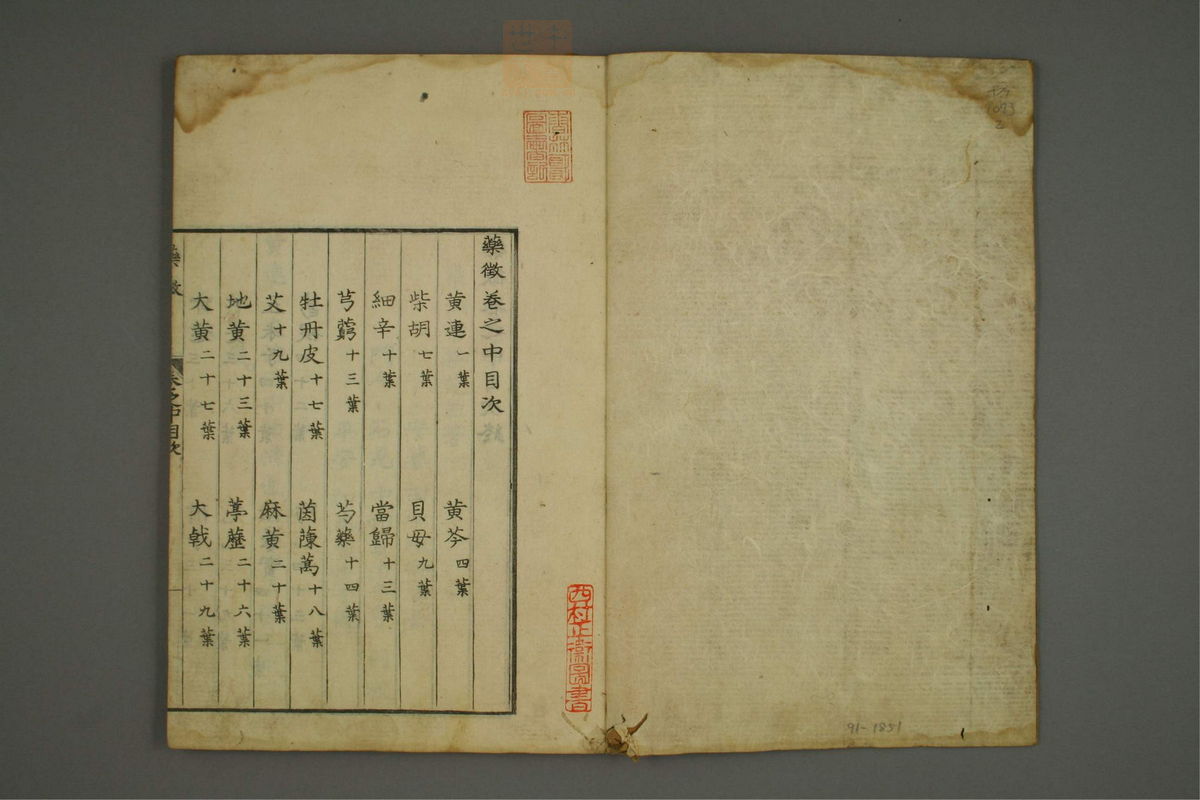 藥徵卷之中目次
黄連一葉 黄芩四葉
柴胡七葉 貝母九葉
細辛十葉 當歸十三葉
芎藭十三葉 芍藥十四葉
牡丹皮十七葉 茵蔯蒿十八葉
艾十九葉 麻黄二十葉
地黄二十三葉 葶藶二十六葉
大黄二十七葉 大戟二十九葉
藥徵 卷之中目次
西村正衛圖書
91-1851